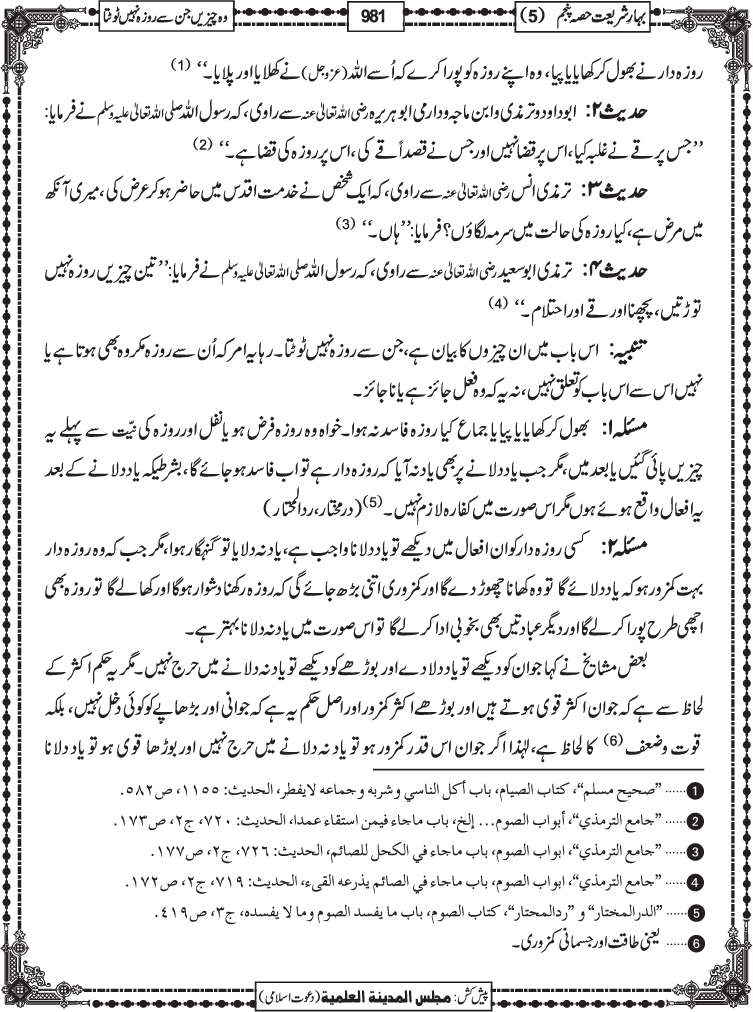 بہارِ شریعت حصہ پنجم (5)
981
وہ چیزیں جن سے روزہ نہیں ٹوٹتا
روزہ دار نے بھول کر کھایا یا پیا، وہ اپنے روزہ کو پورا کرے کہ اُسے اللہ (عزوجل) نے کھلایا اور پلایا۔‘‘ (1)
حدیث ۲: ابوداود و ترمذی وابن ماجہ و دارمی ابوہریرہ رضی اللہ تعالیٰ عنہ سے راوی، کہ رسول اللہ صلی اللہ تعالیٰ علیہ وسلم نے فرمایا:
’’جس پر قے نے غلبہ کیا، اس پر قضا نہیں اور جس نے قصداً قے کی، اس پر روزہ کی قضا ہے۔‘‘ (2)
حدیث ۳: ترمذی انس رضی اللہ تعالیٰ عنہ سے راوی، کہ ایک شخص نے خدمت اقدس میں حاضر ہو کر عرض کی، میری آنکھ
میں مرض ہے، کیا روزہ کی حالت میں سرمہ لگاؤں؟ فرمایا: ’’ہاں۔‘‘ (3)
حدیث ۴: ترمذی ابوسعید رضی اللہ تعالیٰ عنہ سے راوی، کہ رسول اللہ صلی اللہ تعالیٰ علیہ وسلم نے فرمایا: ’’تین چیزیں روزہ نہیں
توڑتیں، پچھنا اور قے اور احتلام۔‘‘ (4)
تنبیہ: اس باب میں ان چیزوں کا بیان ہے، جن سے روزہ نہیں ٹوٹتا۔ رہا یہ امر کہ اُن سے روزہ مکروہ بھی ہوتا ہے یا
نہیں اس سے اس باب کو تعلق نہیں، نہ یہ کہ وہ فعل جائز ہے یا ناجائز۔
مسئلہ ۱: بھول کر کھایا یا پیا یا جماع کیا روزہ فاسد نہ ہوا۔ خواہ وہ روزہ فرض ہو یا نفل اور روزہ کی نیّت سے پہلے یہ
چیزیں پائی گئیں یا بعد میں، مگر جب یاد دلانے پر بھی یاد نہ آیا کہ روزہ دار ہے تو اب فاسد ہو جائے گا، بشرطیکہ یاد دلانے کے بعد
یہ افعال واقع ہوئے ہوں مگر اس صورت میں کفارہ لازم نہیں۔ (5) (درمختار، ردالمحتار)
مسئلہ ۲: کسی روزہ دار کو ان افعال میں دیکھے تو یاد دلانا واجب ہے، یاد نہ دلایا تو گنہگار ہوا، مگر جب کہ وہ روزہ دار
بہت کمزور ہو کہ یاد دلائے گا تو وہ کھانا چھوڑ دے گا اور کمزوری اتنی بڑھ جائے گی کہ روزہ رکھنا دشوار ہوگا اور کھا لے گا تو روزہ بھی
اچھی طرح پورا کر لے گا اور دیگر عبادتیں بھی بخوبی ادا کر لے گا تو اس صورت میں یاد نہ دلانا بہتر ہے۔
بعض مشایخ نے کہا جوان کو دیکھے تو یاد دلا دے اور بوڑھے کو دیکھے تو یاد نہ دلانے میں حرج نہیں۔ مگر یہ حکم اکثر کے
لحاظ سے ہے کہ جوان اکثر قوی ہوتے ہیں اور بوڑھے اکثر کمزور اور اصل حکم یہ ہے کہ جوانی اور بڑھاپے کو کوئی دخل نہیں، بلکہ
قوت و ضعف (6) کا لحاظ ہے، لہٰذا اگر جوان اس قدر کمزور ہو تو یاد نہ دلانے میں حرج نہیں اور بوڑھا قوی ہو تو یاد دلانا
1 ...... ’’صحیح مسلم‘‘، کتاب الصیام، باب أکل الناسي وشربه وجماعه لایفطر، الحدیث: ۱۱۵۵، ص۵۸۲.
2 ...... ’’جامع الترمذي‘‘، أبواب الصوم... إلخ، باب ماجاء فیمن استقاء عمدا، الحدیث: ۷۲۰، ج۲، ص۱۷۳.
3 ...... ’’جامع الترمذي‘‘، ابواب الصوم، باب ماجاء في الکحل للصائم، الحدیث: ۷۲۶، ج۲، ص۱۷۷.
4 ...... ’’جامع الترمذي‘‘، ابواب الصوم، باب ماجاء في الصائم یذرعه القیء، الحدیث: ۷۱۹، ج۲، ص۱۷۲.
5 ...... ’’الدرالمختار‘‘ و ’’ردالمحتار‘‘، کتاب الصوم، باب ما یفسد الصوم وما لا یفسده، ج۳، ص۴۱۹.
6 ...... یعنی طاقت اور جسمانی کمزوری۔
پیش کش: مجلس المدینة العلمیة (دعوت اسلامی)